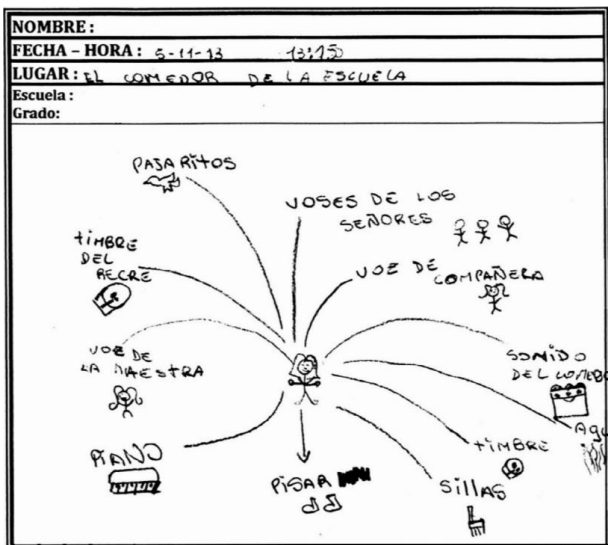 NOMBRE :
FECHA – HORA : 5-11-13 13:15
LUGAR : EL COMEDOR DE LA ESCUELA
Escuela :
Grado:
PAJARITOS
VOSES DE LOS
SEÑORES
TIMBRE
DEL
RECRE
VOZ DE
COMPAÑERA
VOZ DE
LA MAESTRA
SONIDO
DEL COMEDO
AgU
PIANO
TIMBRE
PISAR
SillAS